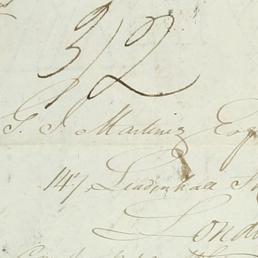 3/2
G. I. Martinez Esq
147, Leadenhall St
London